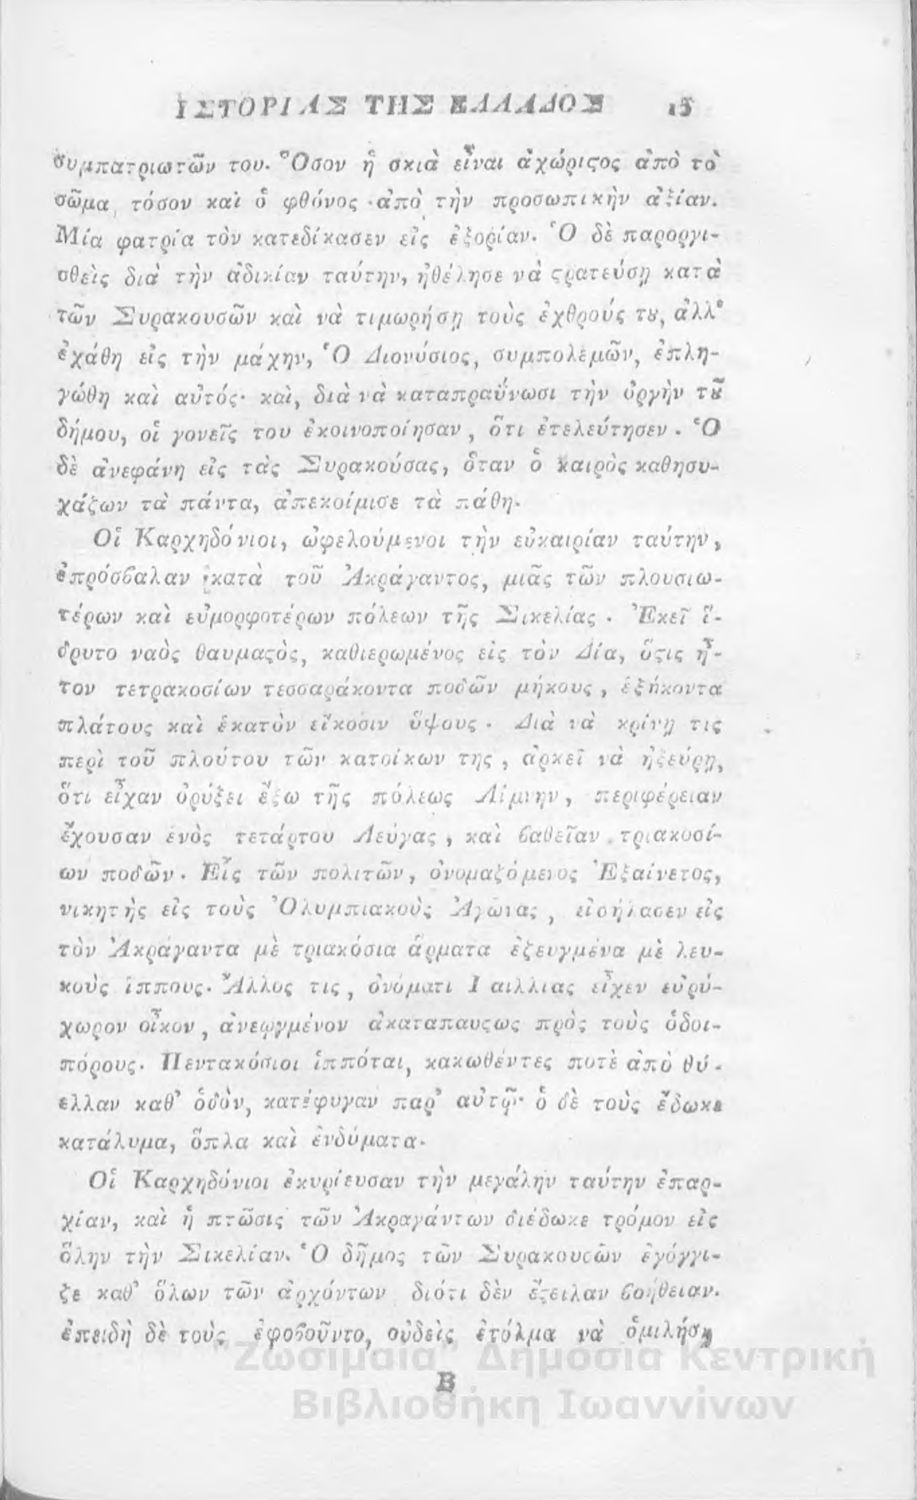 ΙΣΤΟΡΙΑΣ ΤΗΣ ΕΛΛΑΔΟΣ 15
συμπατριωτῶν του. Ὅσον ἡ σκιὰ εἶναι ἀχώριϛος ἀπὸ τὸ
σῶμα, τόσον καὶ ὁ φθόνος ἀπὸ τὴν προσωπικὴν ἀξίαν.
Μία φατρία τὸν κατεδίκασεν εἰς ἐξορίαν. Ὁ δὲ παροργι-
σθεὶς διὰ τὴν ἀδικίαν ταύτην, ἠθέλησε νὰ ϛρατεύσῃ κατὰ
τῶν Συρακουσῶν καὶ νὰ τιμωρήσῃ τοὺς ἐχθρούς τȣ, ἀλλ᾽
ἐχάθη εἰς τὴν μάχην, Ὁ Διονύσιος, συμπολεμῶν, ἐπλη-
γώθη καὶ αὐτός· καὶ, διὰ νὰ καταπραΰνωσι τὴν ὀργὴν τȣ͂
δήμου, οἱ γονεῖς του ἐκοινοποίησαν, ὅτι ἐτελεύτησεν. Ὁ
δὲ ἀνεφάνη εἰς τὰς Συρακούσας, ὅταν ὁ καιρὸς καθησυ-
χάζων τὰ πάντα, ἀπεκοίμισε τὰ πάθη.
Οἱ Καρχηδόνιοι, ὠφελούμενοι τὴν εὐκαιρίαν ταύτην,
ἐπρόσϐαλαν κατὰ τοῦ Ἀκράγαντος, μιᾶς τῶν πλουσιω-
τέρων καὶ εὐμορφοτέρων πόλεων τῆς Σικελίας. Ἐκεῖ ἵ-
δρυτο ναὸς θαυμαϛὸς, καθιερωμένος εἰς τὸν Δία, ὅϛις ἦ-
τον τετρακοσίων τεσσαράκοντα ποδῶν μήκους, ἑξήκοντα
πλάτους καὶ ἑκατὸν εἴκοσιν ὕψους. Διὰ νὰ κρίνῃ τις
περὶ τοῦ πλούτου τῶν κατοίκων της, ἀρκεῖ νὰ ἠξεύρῃ,
ὅτι εἶχαν ὀρύξει ἔξω τῆς πόλεως Λίμνην, περιφέρειαν
ἔχουσαν ἑνὸς τετάρτου Λεύγας, καὶ ϐαθεῖαν τριακοσί-
ων ποδῶν. Εἷς τῶν πολιτῶν, ὀνομαζόμενος Ἐξαίνετος,
νικητὴς εἰς τοὺς Ὀλυμπιακοὺς Ἀγῶνας, εἰσήλασεν εἰς
τὸν Ἀκράγαντα μὲ τριακόσια ἅρματα ἐζευγμένα μὲ λευ-
κοὺς ἵππους. Ἄλλος τις, ὀνόματι Γαιλλιας εἶχεν εὐρύ-
χωρον οἶκον, ἀνεῳγμένον ἀκαταπαυϛως πρὸς τοὺς ὁδοι-
πόρους. Πεντακόσιοι ἱππόται, κακωθέντες ποτὲ ἀπὸ θύ-
ελλαν καθ᾽ ὁδὸν, κατέφυγαν παρ᾽ αὐτῷ· ὁ δὲ τοὺς ἔδωκε
κατάλυμα, ὅπλα καὶ ἐνδύματα.
Οἱ Καρχηδόνιοι ἐκυρίευσαν τὴν μεγάλην ταύτην ἐπαρ-
χίαν, καὶ ἡ πτῶσις τῶν Ἀκραγάντων διέδωκε τρόμον εἰς
ὅλην τὴν Σικελίαν. Ὁ δῆμος τῶν Συρακουσῶν ἐγόγγι-
ζε καθ᾽ ὅλων τῶν ἀρχόντων διότι δὲν ἔϛειλαν ϐοήθειαν.
ἐπειδὴ δὲ τοὺς ἐφοϐοῦντο, οὐδεὶς ἐτόλμα νὰ ὁμιλήσῃ
Β
"Ζωσιμαία" Δημόσια Κεντρική
Βιβλιοθήκη Ιωαννίνων